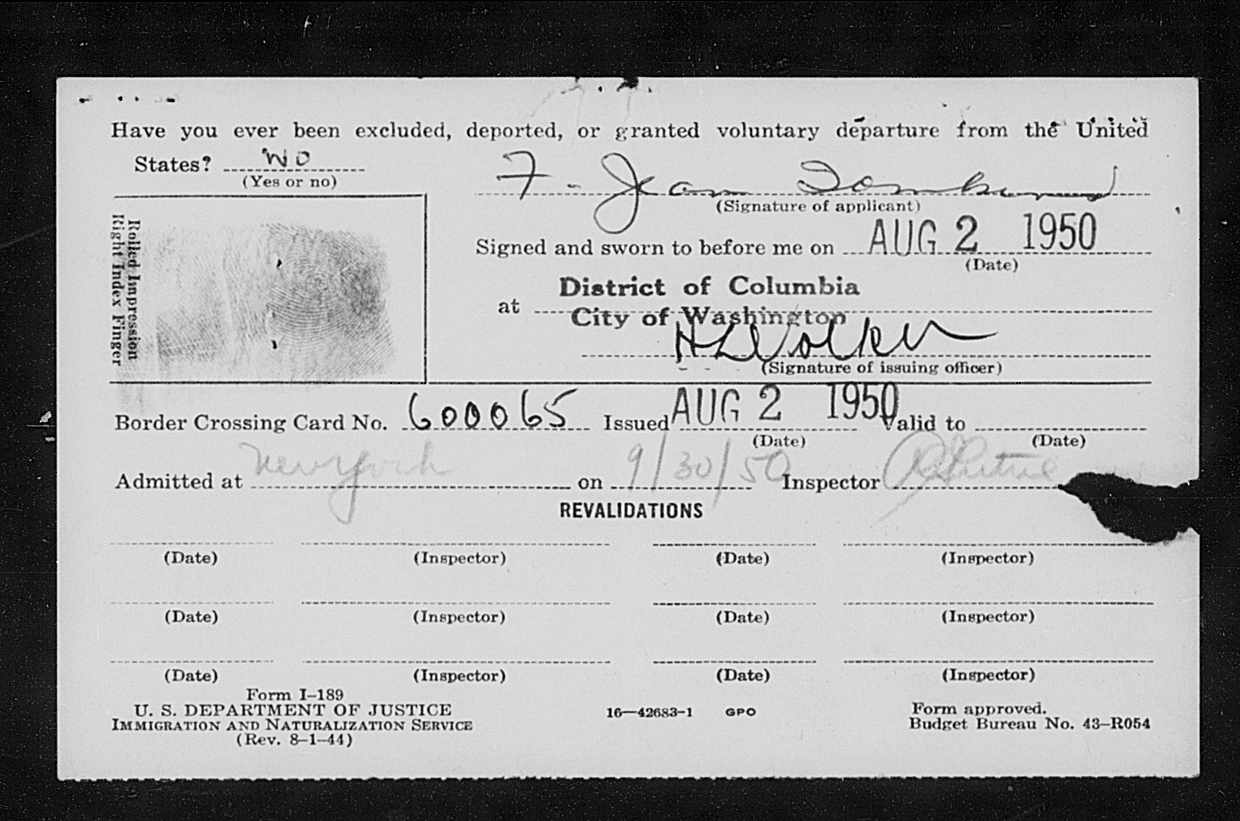 Have you ever been excluded, deported, or granted voluntary departure from the United
States? NO
(Yes or no)
F. Jean
(Signature of applicant)
Rolled Impression
Right Index Finger
Signed and sworn to before me on AUG 2 1950
(Date)
District of Columbia
at City of Washington
(Signature of issuing officer)
Border Crossing Card No. 600065 Issued AUG 2 1950 Valid to
(Date) (Date)
Admitted at New York on 9/30/50 Inspector
REVALIDATIONS
(Date) (Inspector) (Date) (Inspector)
(Date) (Inspector) (Date) (Inspector)
(Date) (Inspector) (Date) (Inspector)
Form I-189
U. S. DEPARTMENT OF JUSTICE 16—42683-1 GPO Form approved.
IMMIGRATION AND NATURALIZATION SERVICE Budget Bureau No. 43-R054
(Rev. 8-1-44)